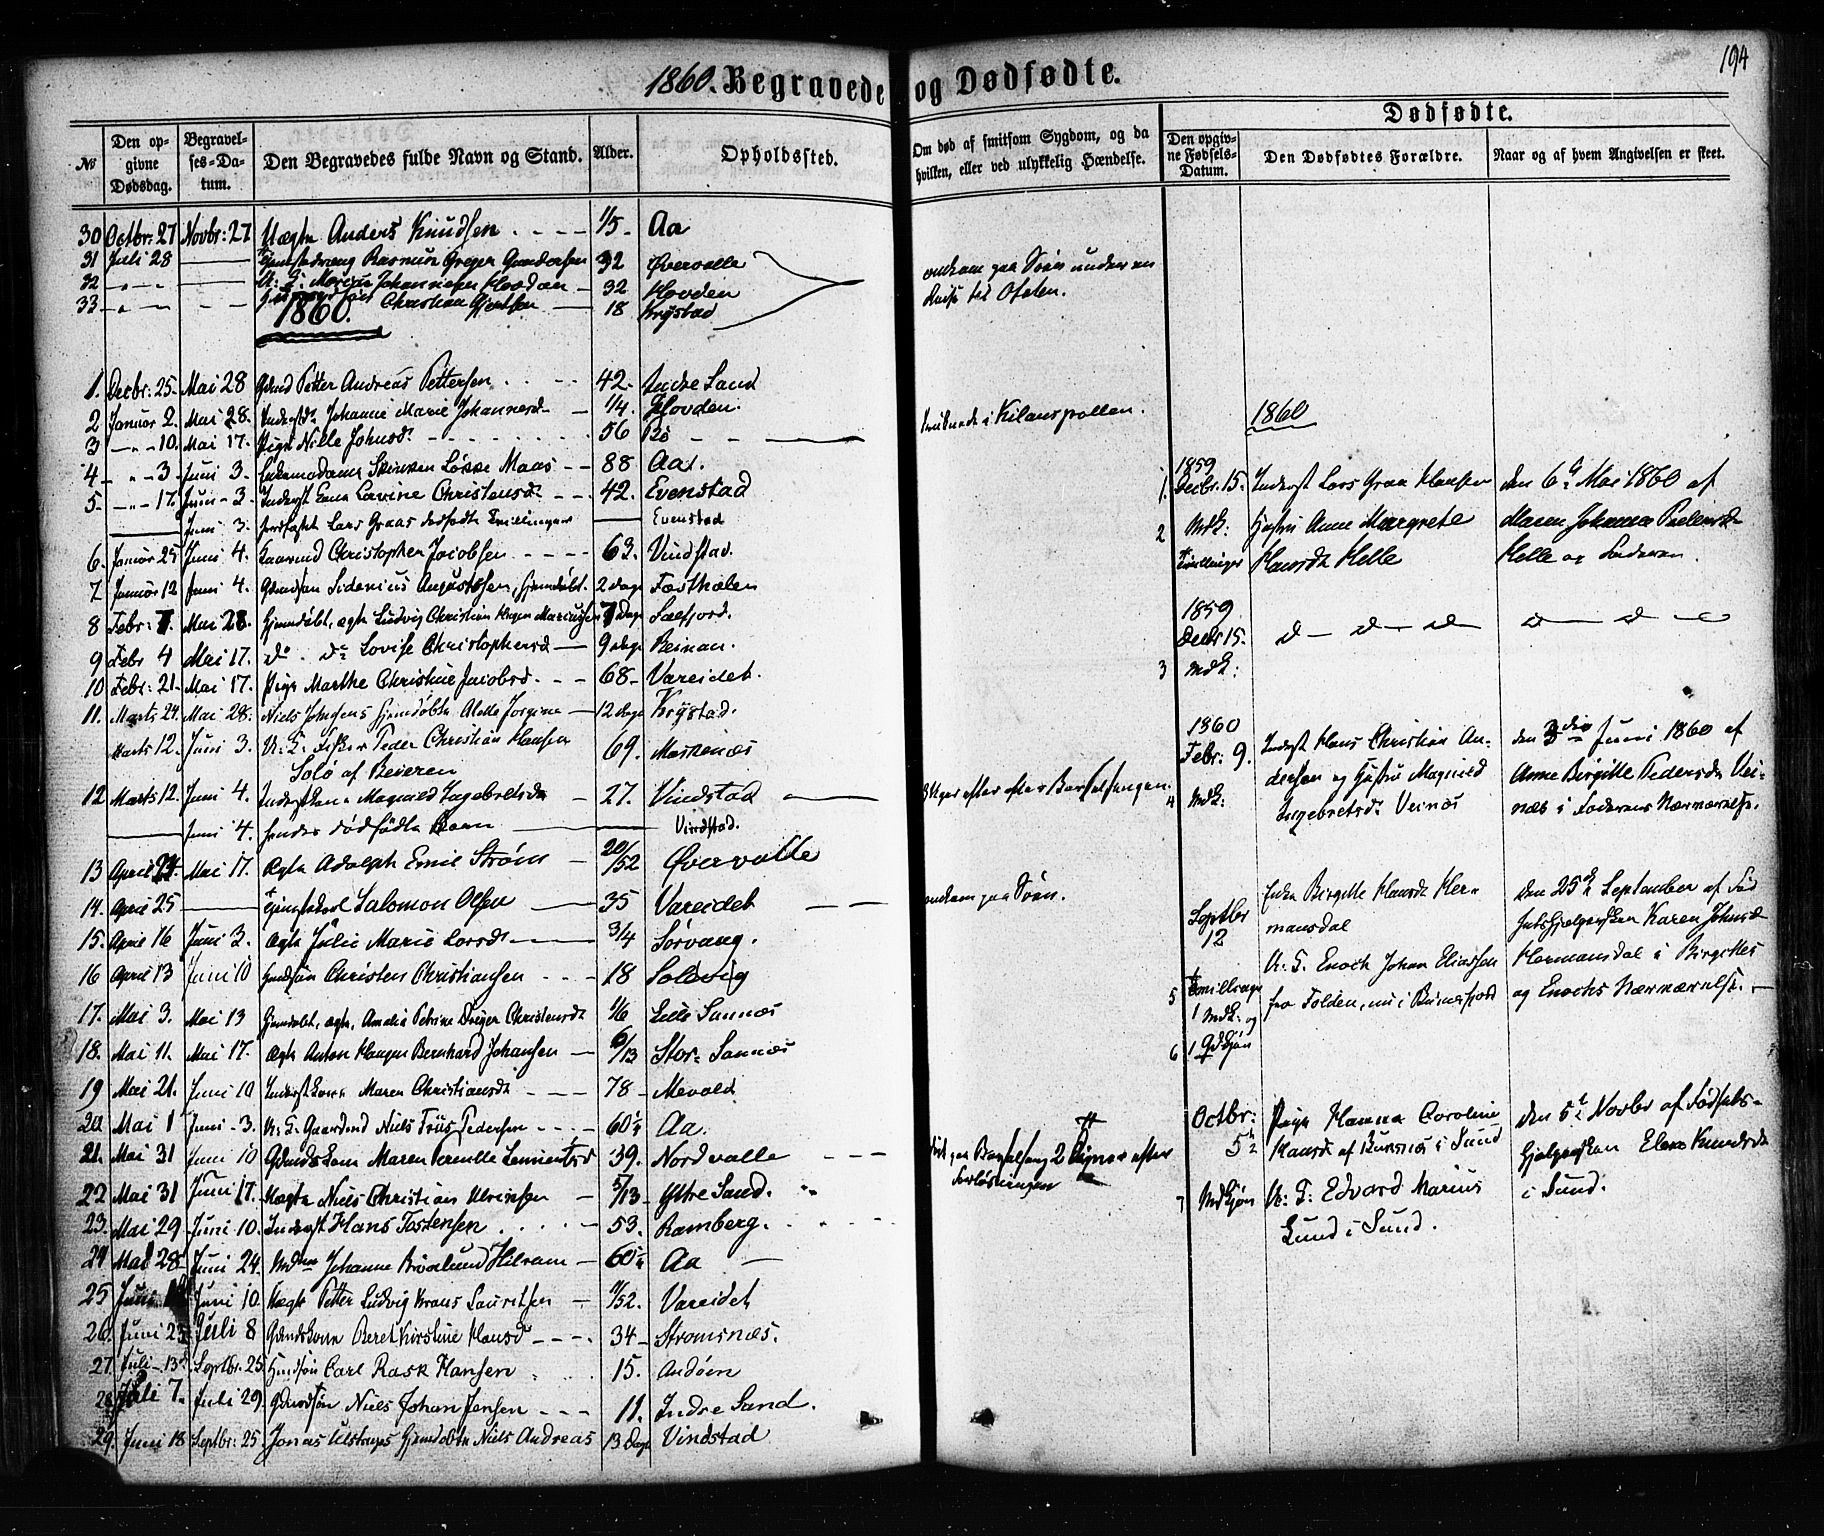 194
1860. Begravede og Dødfødte.
Dødfødte.
№ Den opgivne Dødsdag. Begravelses-Datum. Den Begravedes fulde Navn og Stand. Alder. Opholdssted. Om død af smitsom Sygdom, og da hvilken, eller ved ulykkelig Hændelse. Den opgivne Fødsels-Datum. Den Dødfødtes Forældre. Naar og af hvem Angivelsen er skeet.
30 Octbr: 27 Novbr: 27 Uægte Anders Knudsen 1/5 Aa
31 Juli 28 Rasmus Greger Gundersen 32 Øvervalle omkom paa Søen under en
32 - " - U: G: Marius Johannesen 32 Hovden Reise til Ofoten.
33 - " - Christian 18 Krystad
1860.
1. Decbr: 25. Mai 28 Gdmd Petter Andreas Pettersen 42. Indre Sand
2 Januar 2. Mai 28. Inderstd. Johanne Marie Johannesd 1/4. Hovden. i Kilanspollen.
3 - " - 10. Mai 17. Pige Nille Johnsd 56 Bø
4 - " - 3 Juni 3. Maas 88 Aa.
5 - " - 17. Juni 3. Inderst Lavine Christensd 42. Evenstad
Juni 3. Lars Graas dødfødte Tvillinger Evenstad
6. Januar 25 Juni 4. Gaarmd Christopher Jacobsen 63. Vindstad.
7 Januar 12 Juni 4. Gdmdsøn Sidenius Augustssen, hjemdøbt. 2 Dage
8 Febr: 7. Mai 28. hjemdøbt, ægte Ludvig Christian Hagen Marcussen 7 Dage Selfjord.
9 Febr 4 Mai 17. do. do Lovise Christophersd 9 Dage Reinan.
10 Febr: 21. Mai 17. Pige Marthe Christine Jacobsd. 68 Vareidet.
11. Marts 24. Mai 28. Niels Johnsens hjemdøbte Jorgine 12 Dage Krystad.
Marts 12. Juni 3. U: G: Fisker Peder Christian Hansen 69. Moskenæs
Solö af Beieren
12 Marts 12. Juni 4. Inderstkone Magnild Ingebretsda 27. Vindstad 3 Uger efter Barselsengen.
Juni 4. hendes dødfødte Barn Vindstad.
13 April 24. Mai 17. Ægte Adolph Emil Strøm 20/52 Øvervalle
14. April 25 Salomon Olsen 35 Vareidet omkom paa Søen.
15. April 16 Juni 3. Ægte Julie Marie Larsdt 3/4 Sørvaag.
16 April 13 Juni 10 Gmdsøn Christen Christiansen 18 Solbvig
17. Mai 3. Mai 13 hjemdøbt, ægte, Amalia Petrine Dreyer Christensdt 1/6 Lille Sannæs
18. Mai 11. Mai 17. Ægte Anton Hagen Bernhard Johansen 6/13 Stor-Sannæs
19 Mai 21. Juni 10 Inderstkone Maren Christiansdt 78 Mevold
20 Mai 1 Juni 3. U: G: Gaardmd Niels Friis Pedersen 60 Aa.
21. Mai 31 Juni 10 Gdmdskone Maren Pernille 39. Nordvalle Barselseng 2 efter
Forløsningen
22 Mai 31 Juni 17. Uægte Niels Christian Ulriksen 5/13 Yttre Sand.
23. Mai 29 Juni 10. Inderst Hans Tostensen 53. Ramberg.
24 Mai 28 Juni 24. Johanne Brølund Hilram 60 Aa
25 Juni Juni 10. Uægte Petter Ludvig Kraus Lauritsen /52. Vareidet
26. Juni 25 Juli 8 Gdmdskone Beret Kirstine Hansd 34 Strømsnæs.
27. Juli 13 Septbr. 25 Carl Rask Hansen 15. Andøen
28 Juli 7. Juli 29 Gdmdssøn Niels Johan Jensen 11. Indre Sand.
29. Juni 18 Septbr: 25. Jonas Ulstrups hjemdøbte Niels Andreas 13 Dage Vindstad
1860
1. 1859 Decbr: 15. Inderst Lars Graa Hansen den 6te Mai 1860 af
2 Mdk: Hustru Anne Margrete Maren Johanna
Tvillinger Hansdt Helle Helle og Faderen.
1859
Decbr 15. d - d - d d - d
3 Mdk:
1860
Febr: 9. Inderst Hans Christian An- den 3die Juni 1860 af
dersen og Hustru Magnild Anne Birgitte Pedersda Vei-
4 Mdk: Ingebretsdt. Veinæs næs i Faderens Nærværelse.
Septbr 12 Enke Birgitte Hansdt Her- den 25de September af Fød-
mansdal Karen Johnsd
U: G: Enoch Johan Eliassen Hermansdal i Birgittes
5 Tvillinger fra Folden, nu i og Enochs Nærværelse.
1 Mdk: og
6 1 Qvkjøn
Octbr: 5te Pige Hanna Caroline den 5te Novbr af Fødsels-
Kaarsd af i Sund hjelpersken Elen Knudsda
7 Mdkjøn U: G: Edvard Marius i Sund.
Lund i Sund.